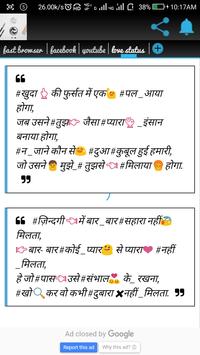 26.00k/s 38% 10:17AM
fast browser | facebook | youtube | love status
#खुदा की फुर्सत में एक #पल _आया
होगा,
जब उसने #तुझ जैसा #प्यारा _इंसान
बनाया होगा,
#न _जाने कौन से #दुआ #कुबूल हुई हमारी,
जो उसने मुझे_# तुझसे #मिलाया होगा.
#ज़िन्दगी में बार _बार #सहारा नहीं
मिलता,
बार- बार #कोई _प्यार से प्यारा #नहीं
_मिलता,
हे जो #पास उसे #संभाल के_ रखना,
#खो कर वो कभी #दुबारा नहीं_मिलता.
Ad closed by Google
Report this ad
Why this ad?